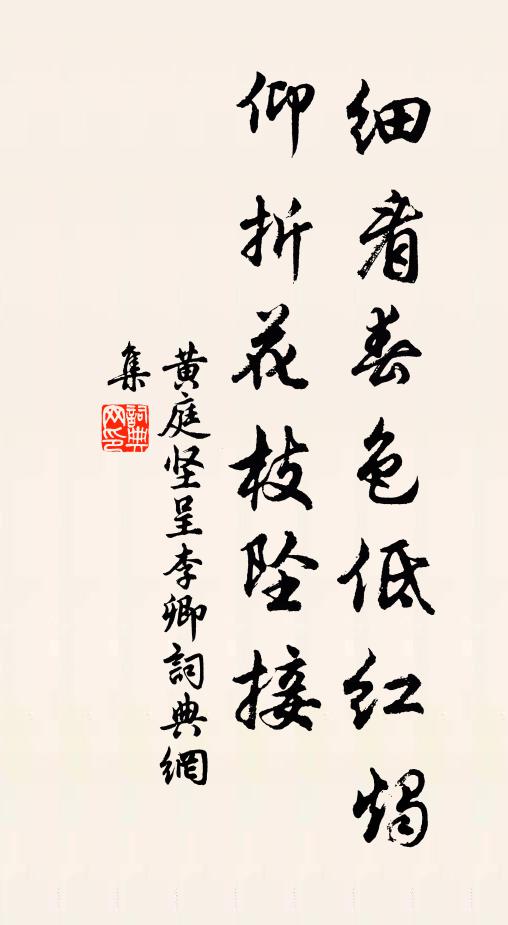 细看春色低红烛
仰折花枝坠接
黄庭坚呈李卿詞典網
集
詞典网印